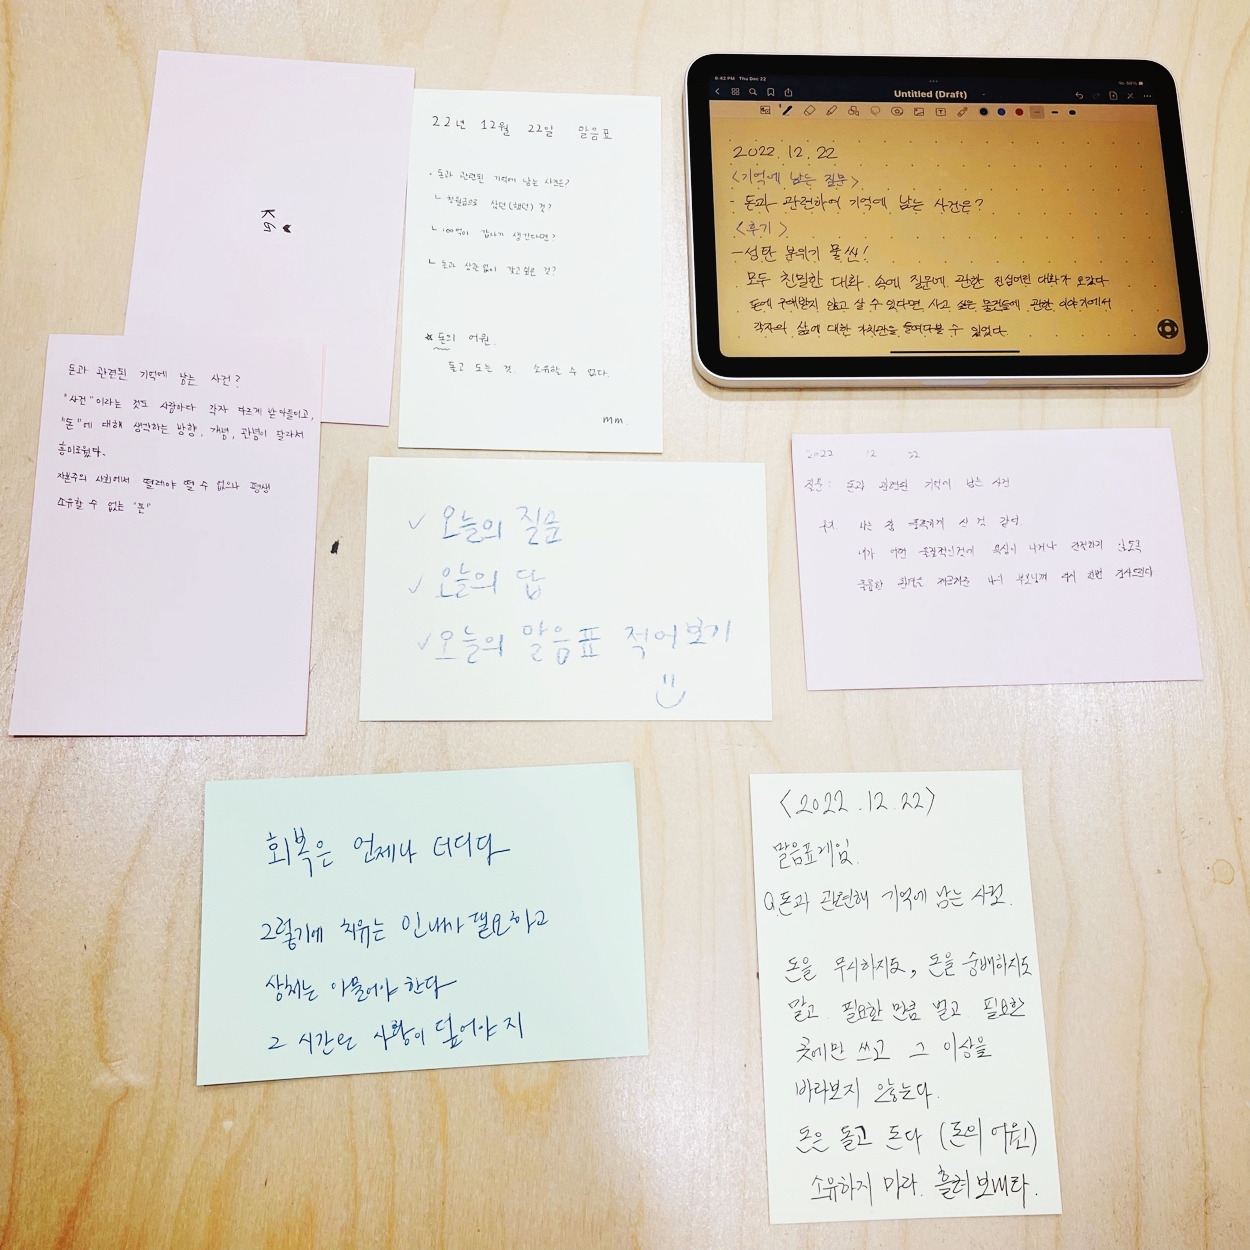 KB
22년 12월 22일 말음표
· 돈과 관련된 기억에 남는 사건은?
ㄴ 첫월급으로 샀던(했던) 것?
ㄴ 100억이 갑자기 생긴다면?
ㄴ 돈과 상관없이 갖고싶은 것?
* 돈의 어원.
돌고 도는 것. 소유할 수 없다.
mm.
6:42 PM Thu Dec 22
Untitled (Draft)
2022. 12. 22
<기억에 남는 질문>
- 돈과 관련하여 기억에 남는 사건은?
<후기>
- 성탄 분위기 물씬!
모두 친밀한 대화 속에 질문에 관한 진심어린 대화가 오갔다
돈에 구애받지 않고 살 수 있다면, 사고 싶은 물건들에 관한 이야기에서
각자의 삶에 대한 가치관을 들여다볼 수 있었다.
돈과 관련된 기억에 남는 사건?
"사건"이라는 것도 사람마다 각자 다르게 받아들이고,
"돈"에 대해 생각하는 방향, 개념, 관념이 달라서
흥미로웠다.
자본주의 사회에서 떨레야 떨 수 없으나 평생
소유할 수 없는 "돈"
✓ 오늘의 질문
✓ 오늘의 답
✓ 오늘의 말음표 적어보기
2022 12 22
질문: 돈과 관련된 기억에 남는 사건
나는 참 풍족하게 산 것 같다.
내가 어떤 물질적인것에 욕심이 나거나 간절하지 않도록
부모님께 다시 한번 감사드린다
회복은 언제나 더디다
그렇기에 치유는 인내가 필요하고
상처는 아물어야 한다
그 시간은 사랑이 덮어야지
<2022.12.22>
말음표게임.
Q.돈과 관련해 기억에 남는 사건.
돈을 무시하지도, 돈을 숭배하지도
말고. 필요한 만큼 벌고. 필요한
곳에만 쓰고 그 이상을
바라보지 않는다.
돈은 돌고 돈다 (돈의 어원)
소유하지 마라. 흘려 보내라.